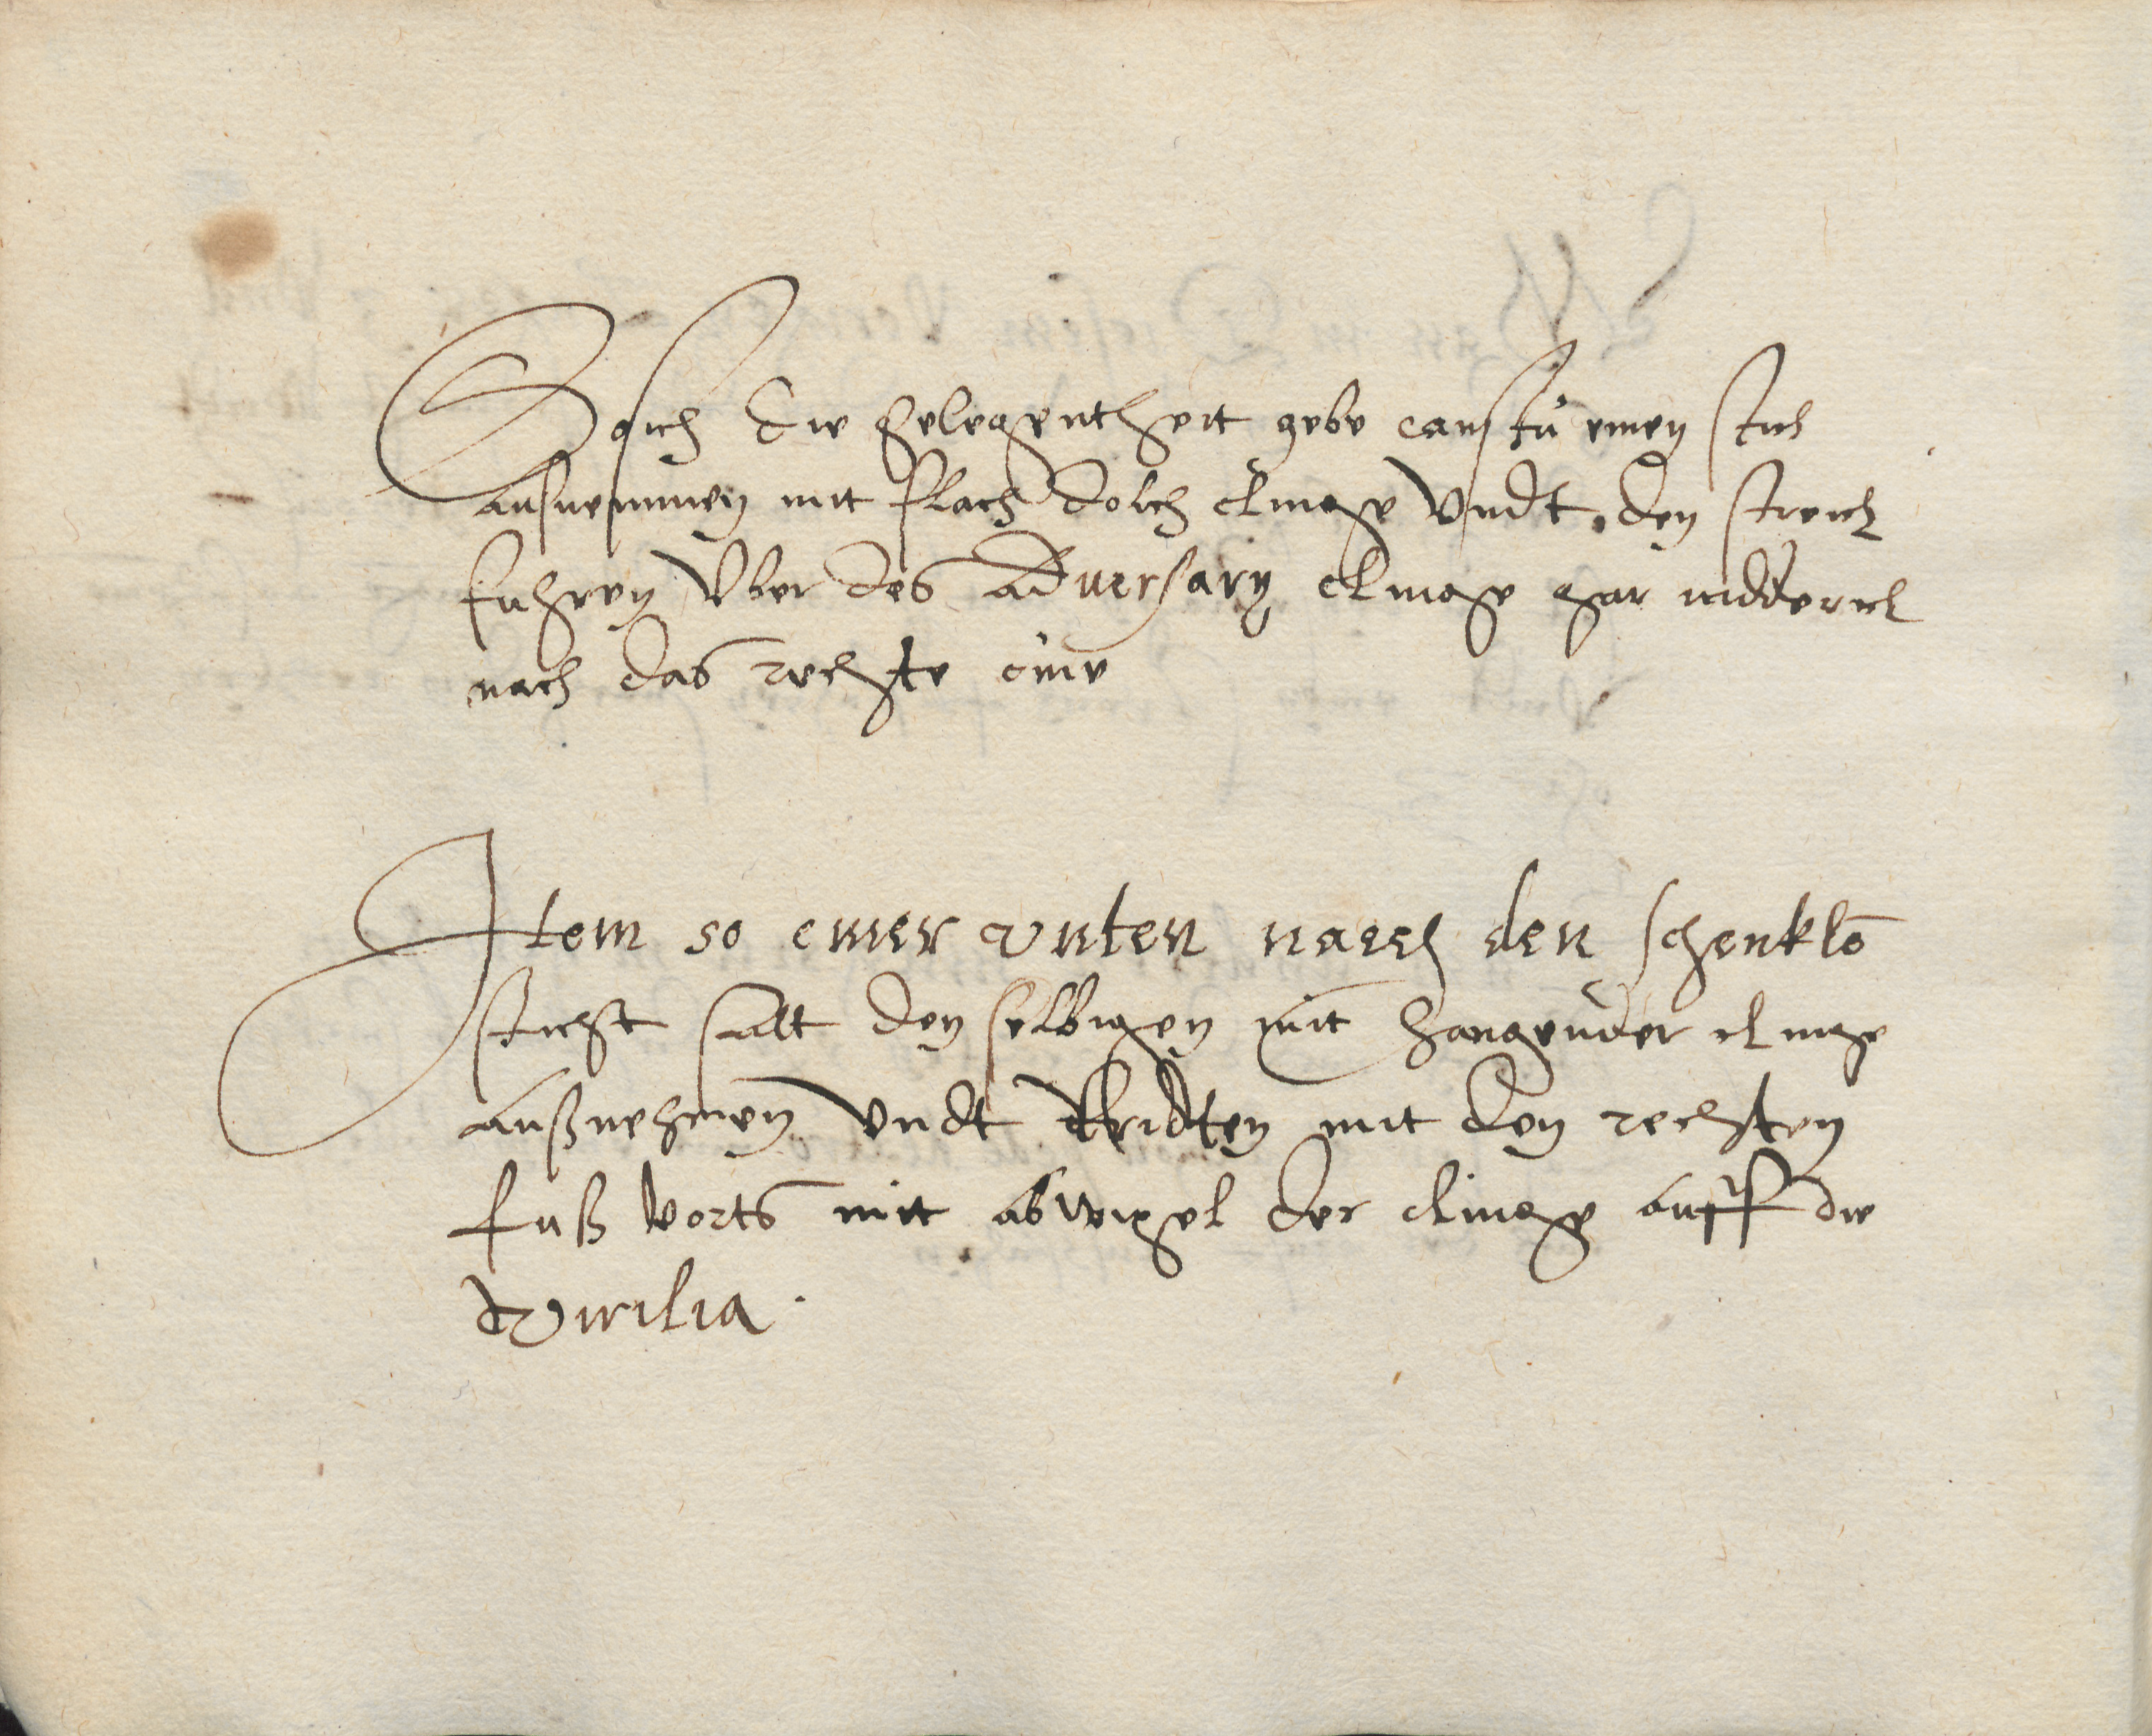 So sich die gelegentheit gebe canstu einen stich
ausnemmen mit flach dolch clinge Vndt den streich
fuhren Vber des adversary clinge gar nidderich
nach das rechte
Item so einer vnten nach den schenklē
sticht salt den selbigen mit hangender clinge
außnehmen Vndt tridten mit den rechten
fuß vorts mit abweigel der clinge auff die
Virilia.